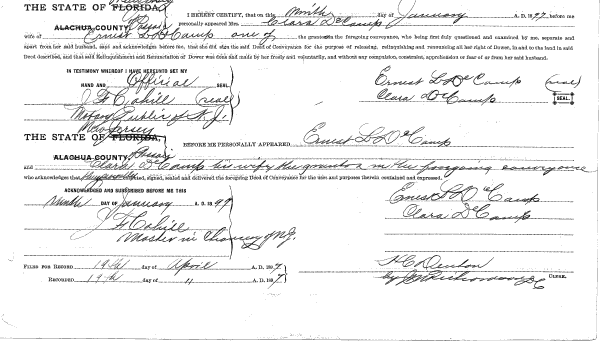 THE STATE OF FLORIDA, New Jersey
ALACHUA COUNTY. Passaic I HEREBY CERTIFY, that on this Ninth day of January A. D. 1897, before me
personally appeared Mrs. Clara DeCamp
wife of Ernest L DeCamp one of the grantors in the foregoing conveyance, who being first duly questioned and examined by me, separate and
apart from her said husband, says and acknowledges before me, that she did sign the said Deed of Conveyance for the purpose of releasing, relinquishing and renouncing all her right of Dower, in and to the land in said
Deed described, and that said Relinquishment and Renunciation of Dower was done and made by her freely and voluntarily, and without any compulsion, constraint, apprehension or fear of or from her said husband.
IN TESTIMONY WHEREOF I HAVE HEREUNTO SET MY
HAND AND Official SEAL.
J F Cahill (seal)
Notary Public of N. J.
Ernest L DeCamp (seal)
Clara DeCamp SEAL.
New Jersey
THE STATE OF FLORIDA,
ALACHUA COUNTY. Passaic
BEFORE ME PERSONALLY APPEARED Ernest L DeCamp
and Clara DeCamp his wife the grantors in the foregoing conveyance
who acknowledges that they signed, sealed and delivered the foregoing Deed of Conveyance for the uses and purposes therein contained and expressed.
ACKNOWLEDGED AND SUBSCRIBED BEFORE ME THIS
Ninth DAY OF January A. D. 1897
J F Cahill
Master in Chancery of N.J.
Ernest L DeCamp
Clara DeCamp
FILED FOR RECORD 19th day of April A. D. 1897.
RECORDED 19th day of " A. D. 1897.
H C Denton
by CLERK.